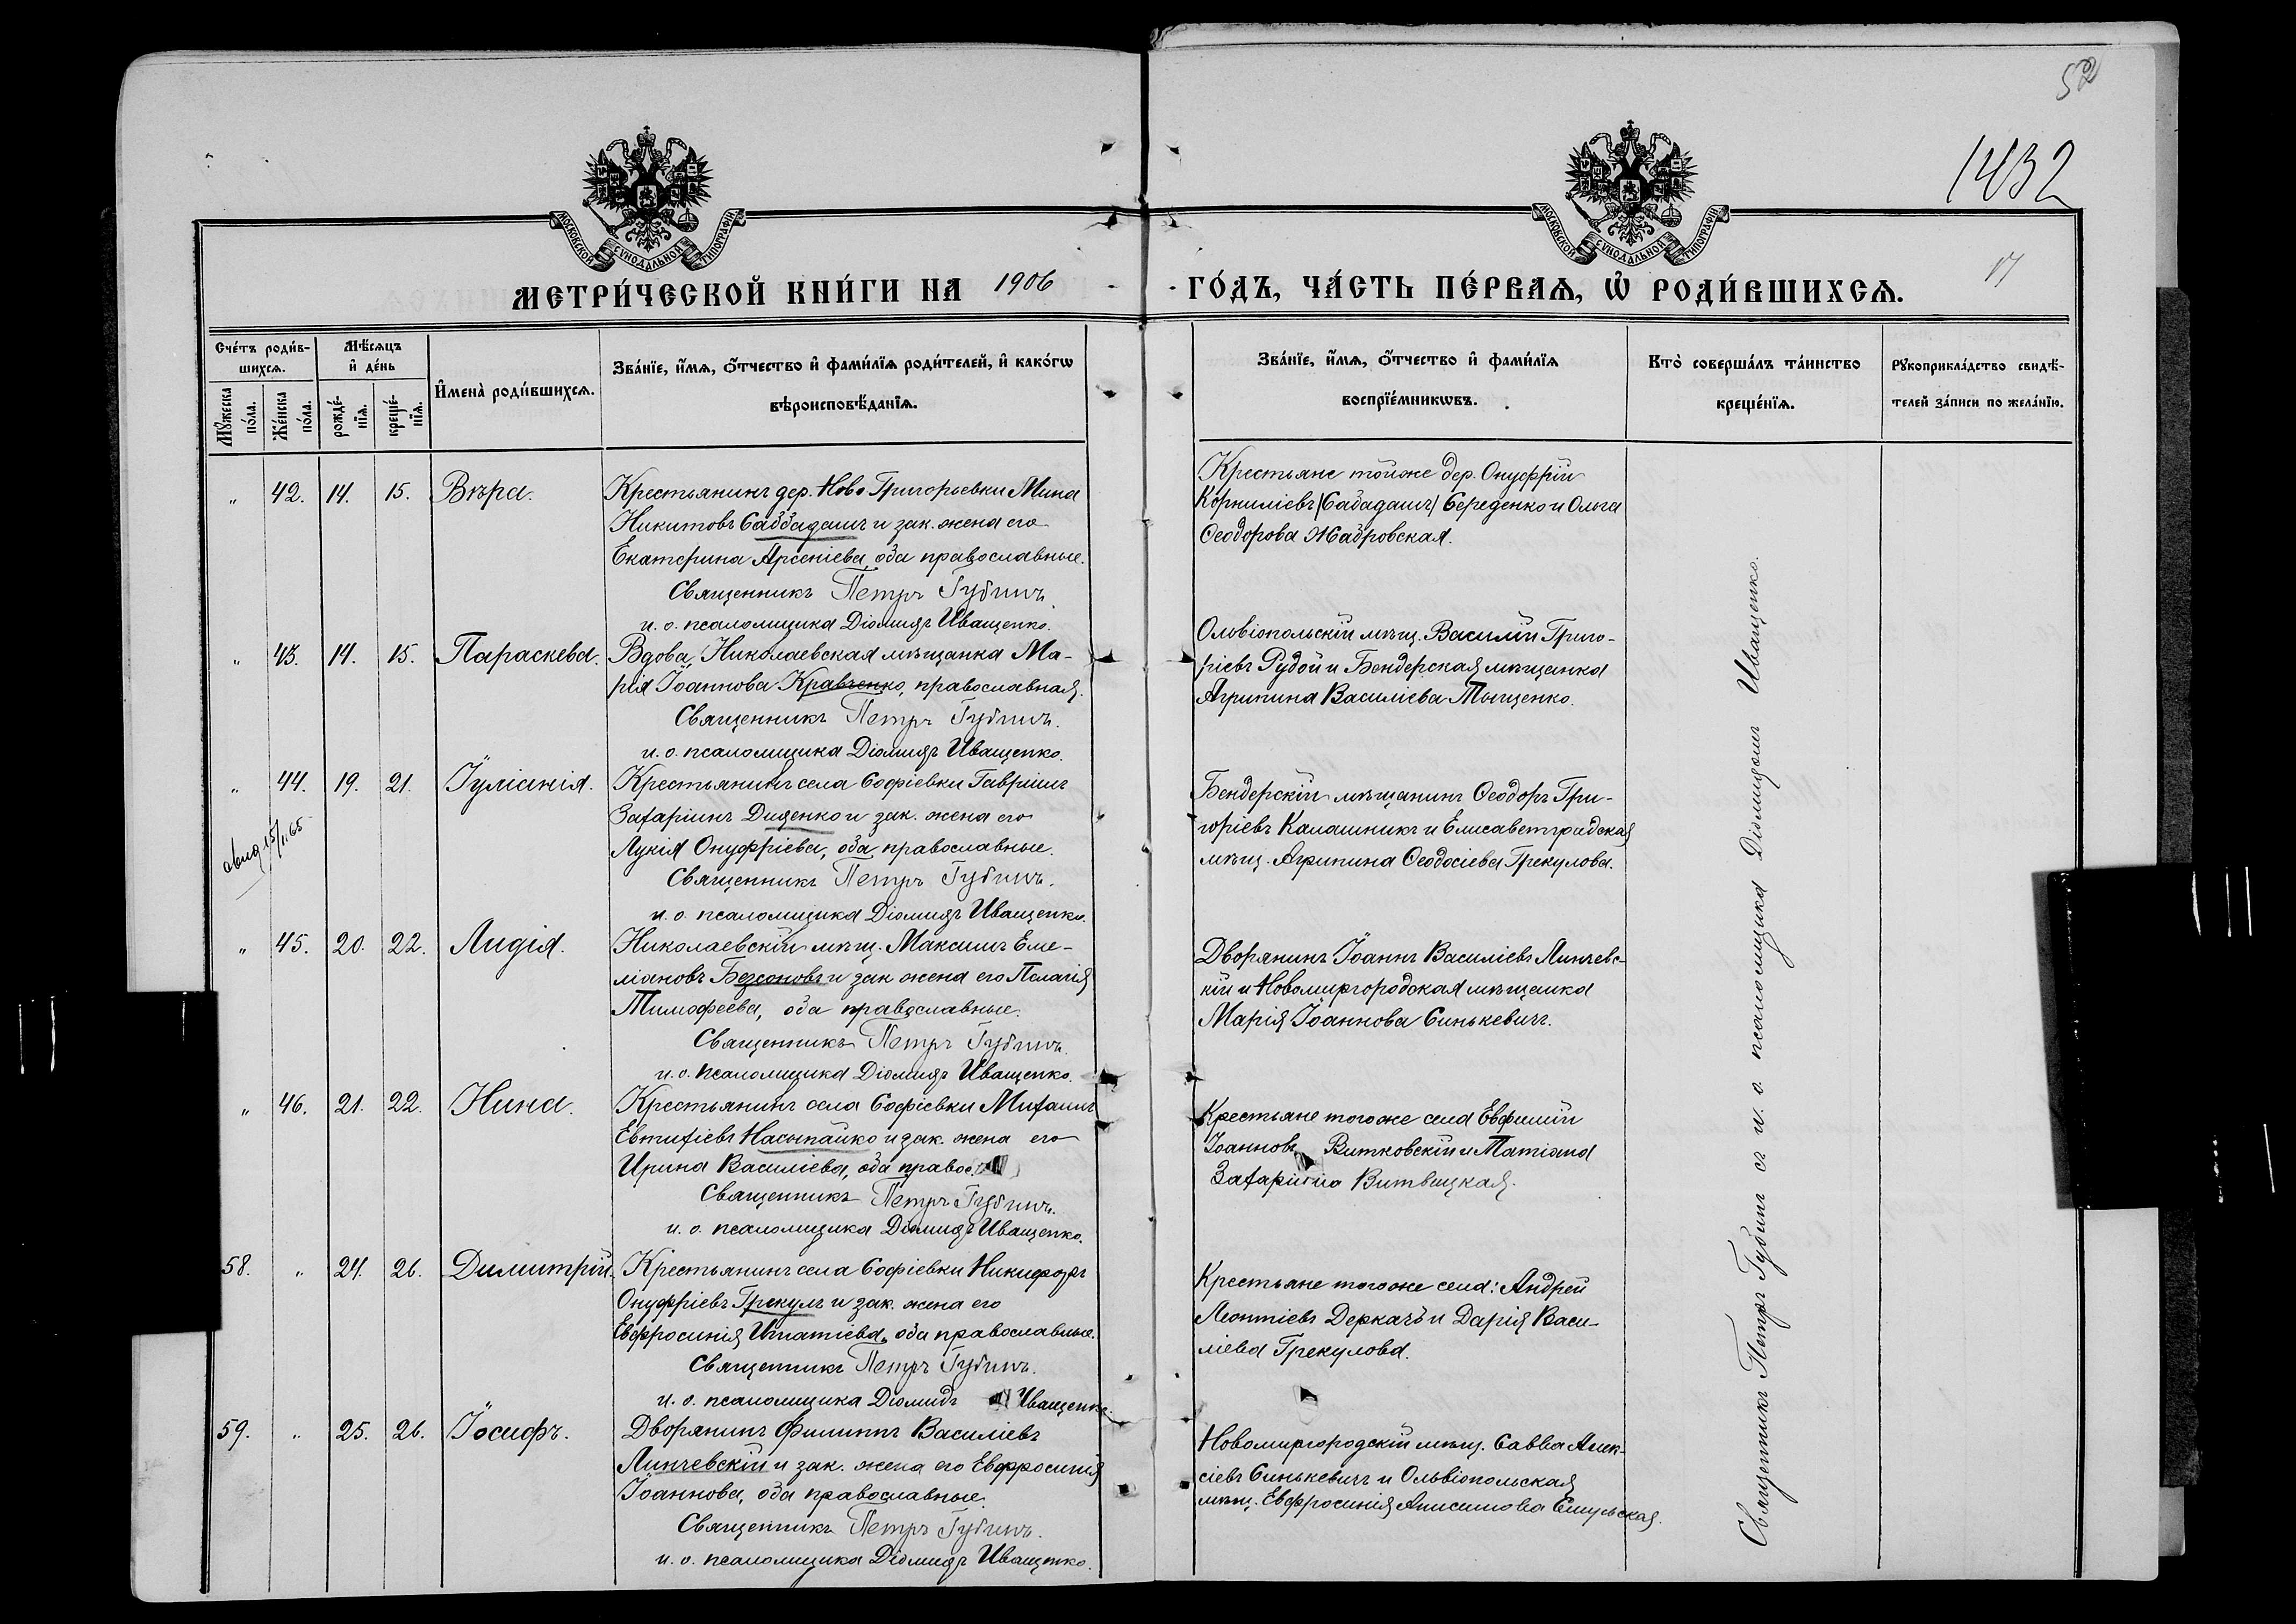 52
1432
17
МОСКОВСКОЙ СѴНОДАЛЬНОЙ ТИПОГРАФІИ
МОСКОВСКОЙ СѴНОДАЛЬНОЙ ТИПОГРАФІИ
МЕТРИ́ЧЕСКОЙ КНИ́ГИ НА 1906
ГО́ДЪ, ЧА́СТЬ ПЕ́РВАѦ, Ѡ҆ РОДИ́ВШИХСѦ.
Сче́тъ роди́в-
шихсѧ.
Мꙋ́жеска по́ла.
Же́нска по́ла.
Мѣ́сѧцъ
и҆ де́нь
рожде́-
нїѧ.
креще́-
нїѧ.
И҆мена̀ роди́вшихсѧ.
Зва́нїе, и҆́мѧ, ѻ҆́тчество и҆ фами́лїѧ роди́телей, и҆ како́гѡ
вѣроисповѣ́данїѧ.
Зва́нїе, и҆́мѧ, ѻ҆́тчество и҆ фами́лїѧ
воспрїе́мникѡвъ.
Кто̀ соверша́лъ та́инство
креще́нїѧ.
Рꙋкоприкла́дство свидѣ́-
телей за́писи по жела́нїю.
„ 42. 14. 15. Вѣра.
Крестьянинъ дер. Ново Григорьевки Мина
Никитовъ Саббадашъ и зак. жена его
Екатерина Арсеніева, оба православные.
Священникъ Петръ Губинъ.
и. о. псаломщика Діомидъ Иващенко.
Крестьяне тойже дер. Онуфрій
Корниліевъ (Сабадашъ) Середенко и Ольга
Ѳеодорова Жабровская.
„ 43. 14. 15. Параскева.
Вдова, Николаевская мѣщанка Ма-
рія Іоаннова Кравченко, православная.
Священникъ Петръ Губинъ.
и. о. псаломщика Діомидъ Иващенко.
Ольвіопольскій мѣщ. Василій Григо-
ріевъ Рудой и Бендерская мѣщанка
Агрипина Василіева Тыщенко.
„ 44. 19. 21. Іуліанія.
Крестьянинъ села Софіевки Гавріилъ
Захаріинъ Диденко и зак. жена его
Лукія Онуфріева, оба православные.
Священникъ Петръ Губинъ.
и. о. псаломщика Діомидъ Иващенко.
Бендерскій мѣщанинъ Ѳеодоръ Гри-
горіевъ Калашникъ и Елисаветградская
мѣщ. Агрипина Ѳеодосіева Грекулова.
„ 45. 20. 22. Лидія.
Николаевскій мѣщ. Максимъ Еме-
ліановъ Безсоновъ и зак жена его Пелагія
Тимофеева, оба православные.
Священникъ Петръ Губинъ.
и. о. псаломщика Діомидъ Иващенко.
Дворянинъ Іоаннъ Василіевъ Линчевс-
кій и Новомиргородская мѣщанка
Марія Іоаннова Синькевичъ.
„ 46. 21. 22. Нина.
Крестьянинъ села Софіевки Михаилъ
Евтихіевъ Насыпайко и зак. жена его
Ирина Василіева, оба правос
Священникъ Петръ Губинъ.
и. о. псаломщика Діомидъ Иващенко.
Крестьяне тогоже села Евфимій
Іоанновъ Витковскій и Татіана
Захаріина
58. „ 24. 26. Димитрій.
Крестьянинъ села Софіевки Никифоръ
Онуфріевъ Грекулъ и зак. жена его
Евфросинія Игнатіева, оба православные.
Священникъ Петръ Губинъ.
и. о. псаломщика Діомидъ Иващенко.
Крестьяне тогоже села: Андрей
Леонтіевъ Деркачъ и Дарія Васи-
ліева Грекулова.
59. „ 25. 26. Іосифъ.
Дворянинъ Филиппъ Василіевъ
Линчевскій и зак. жена его Евфросинія
Іоаннова, оба православные.
Священникъ Петръ Губинъ.
и. о. псаломщика Діомидъ Иващенко.
Новомиргородскій мѣщ. Савва Алек-
сіевъ Синькевичъ и Ольвіопольская
мѣщ. Евфросинія Анисимова
Священникъ Петръ Губинъ съ и. о. псаломщика Діомидомъ Иващенко.